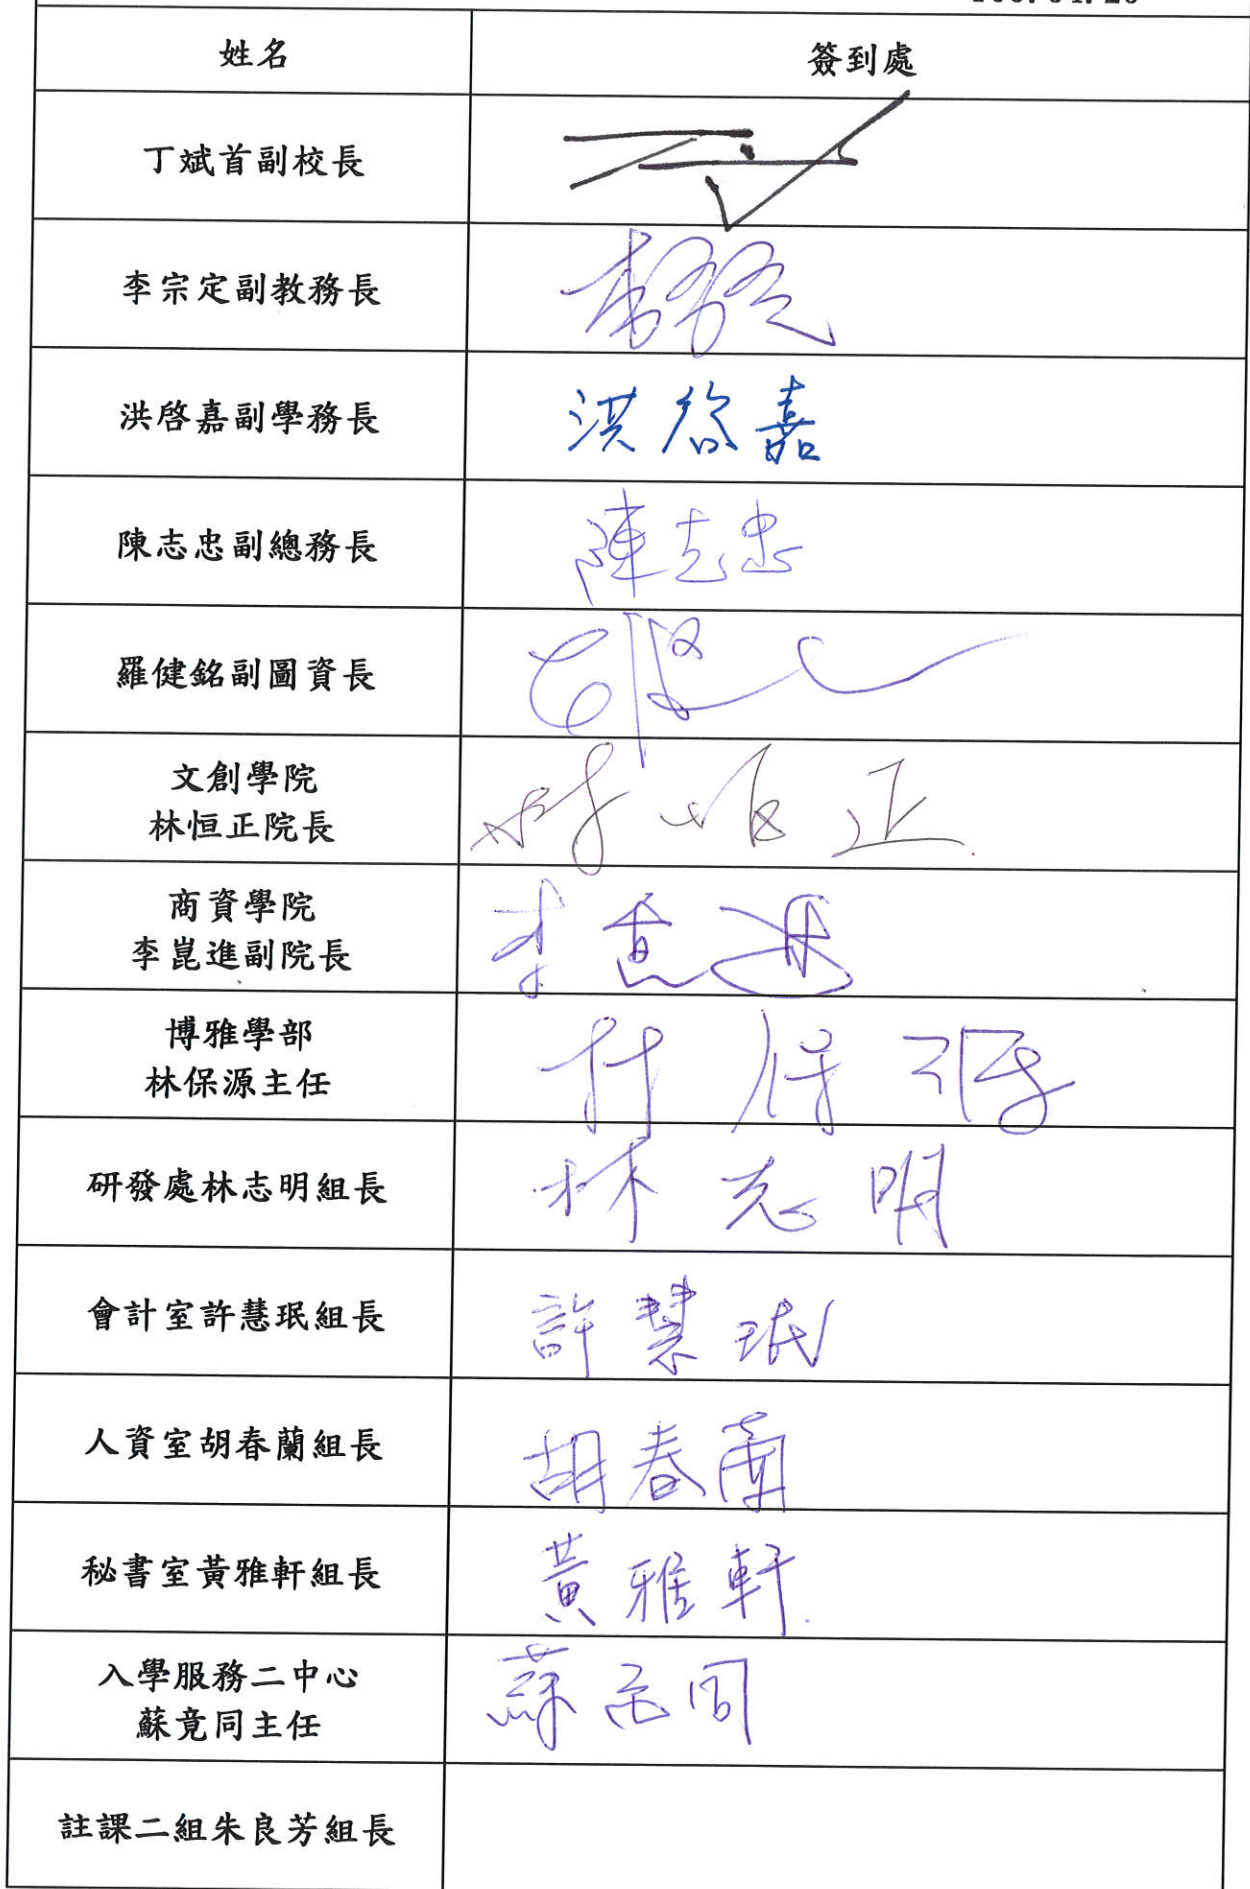 姓名 簽到處
丁斌首副校長
李宗定副教務長
洪啓嘉副學務長 洪啓嘉
陳志忠副總務長 陳志忠
羅健銘副圖資長
文創學院
林恒正院長 林恒正
商資學院
李崑進副院長 李崑進
博雅學部
林保源主任 林保源
研發處林志明組長 林志明
會計室許慧珉組長 許慧珉
人資室胡春蘭組長 胡春蘭
秘書室黃雅軒組長 黃雅軒
入學服務二中心
蘇竟同主任 蘇竟同
註課二組朱良芳組長